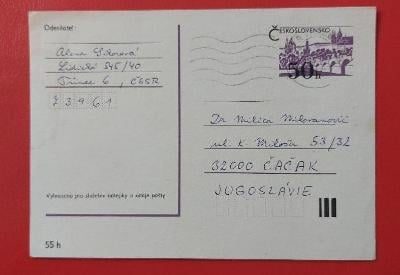 Odesílatel:
Alena Sikorová
Lidická 545/40
Třinec 6, ČSSR
73961
Vyhrazeno pro služební nálepky a údaje pošty
55 h
ČESKOSLOVENSKO
50h
Dr Milica Milovanović
ul. K. Miloša 53/32
32000 ČAČAK
JUGOSLÁVIE